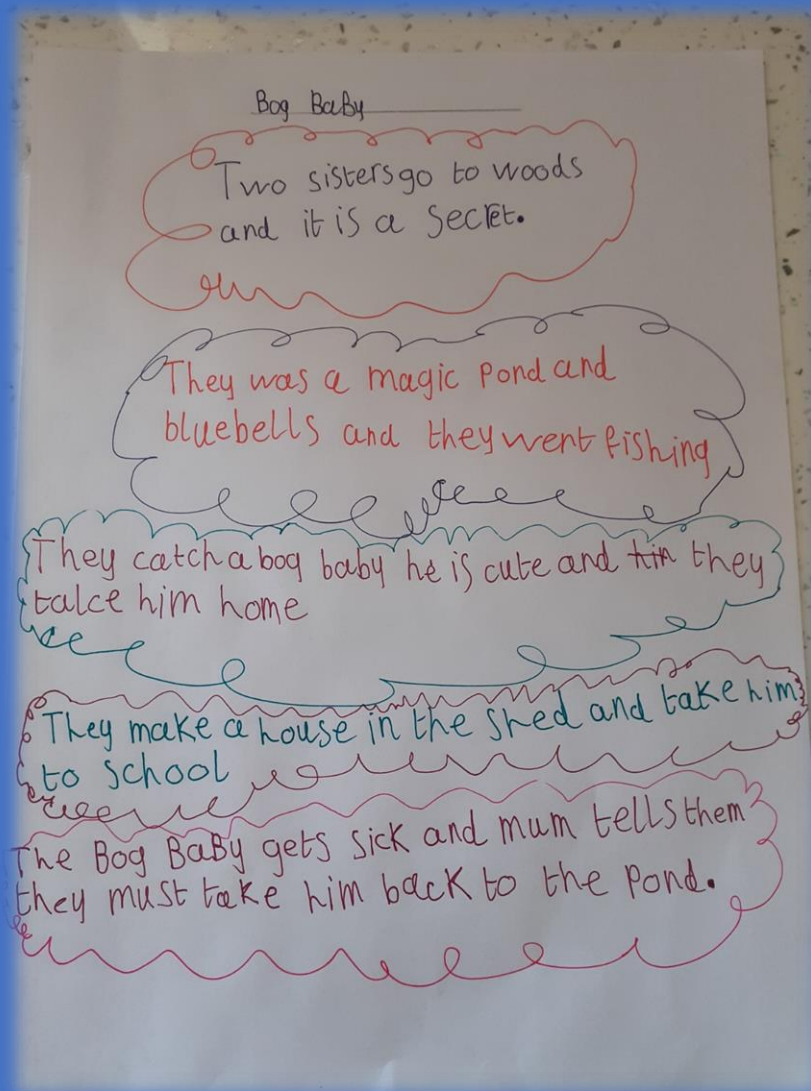 Bog BaBy
Two sisters go to woods
and it is a secret.
They was a magic pond and
bluebells and they went fishing
They catch a bog baby he is cute and him they
talce him home
They make a house in the shed and take him
to school
The Bog BaBy gets sick and mum tells them
they must take him back to the pond.